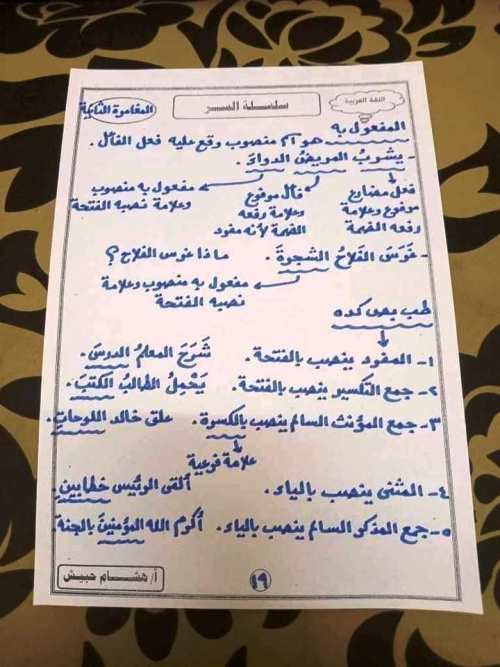 اللغة العربية
سلسلة السر
المغامرة الثانية
المفعول به هو اسم منصوب وقع عليه فعل الفاعل.
- يشربُ المريضُ الدواءَ.
فعل مضارع مرفوع وعلامة رفعه الضمة
فاعل مرفوع وعلامة رفعه الضمة لأنه مفرد
مفعول به منصوب وعلامة نصبه الفتحة
- غَرَسَ الفلاحُ الشجرةَ. ماذا غرس الفلاح؟
مفعول به منصوب وعلامة
نصبه الفتحة
طب بص كده
١- المفرد ينصب بالفتحة. شَرَحَ المعلمُ الدرسَ.
٢- جمع التكسير ينصب بالفتحة. يَحْمِلُ الطالبُ الكتبَ.
٣- جمع المؤنث السالم ينصب بالكسرة. علق خالد اللوحاتِ.
علامة فرعية
٤- المثنى ينصب بالياء. ألقى الرئيس خطابين.
٥- جمع المذكر السالم ينصب بالياء. أكرم الله المؤمنين بالجنة.
١٩
أ/ هشام حبيش